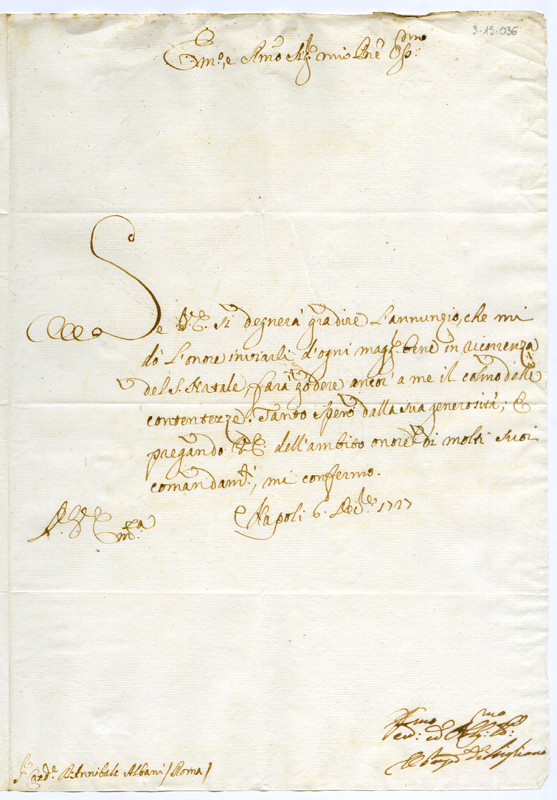 3-13-036
Em.o, e
Se V.E. si degnerà gradire l'annunzio, che mi
dò l'onore inviarli d'ogni magg.r bene in ricorrenza
del S. Natale, farà godere ancor' a me il colmo delle
contentezze. Tanto spero dalla sua generosità, E
pregando V.E. dell'ambito onore di molti suoi
comandam.ti, mi confermo.
Napoli 6. Dec.re 1727
S.r Card.e Annibale Albani / Roma /